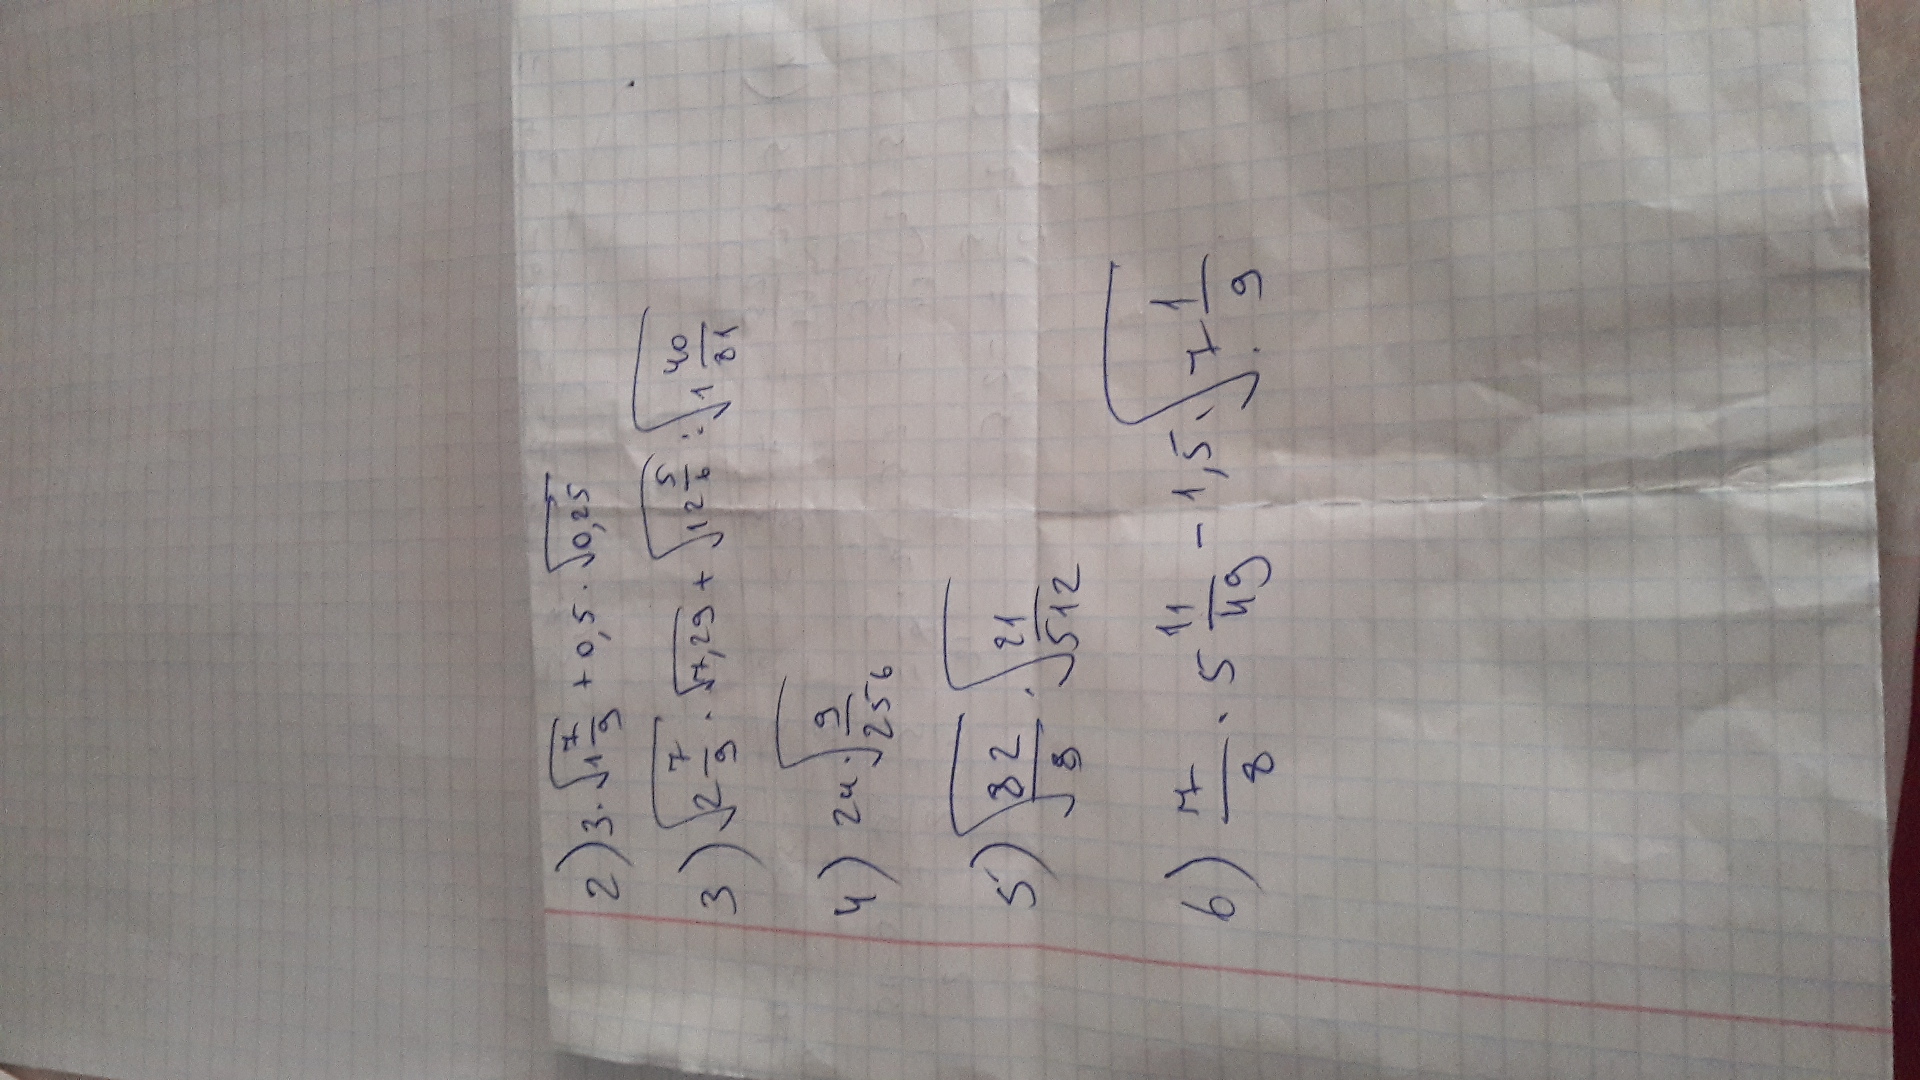 2) 3·√1 7/9 + 0,5 · √0,25
3) √2 7/9 · √7,29 + √12 5/6 : √1 40/81
4) 24·√9/256
5) √82/9 · √21/512
6) 7/8 · 5 11/49 - 1,5 : √7 1/9